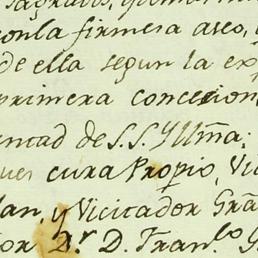 sagrados,
con la firmesa aseo,
de ella segun la ex
primera concesion
untad de S.S. Yllma;
ues cura Propio, Vic
lan, y Vicitador Gra
or Dr. D. Franco. G